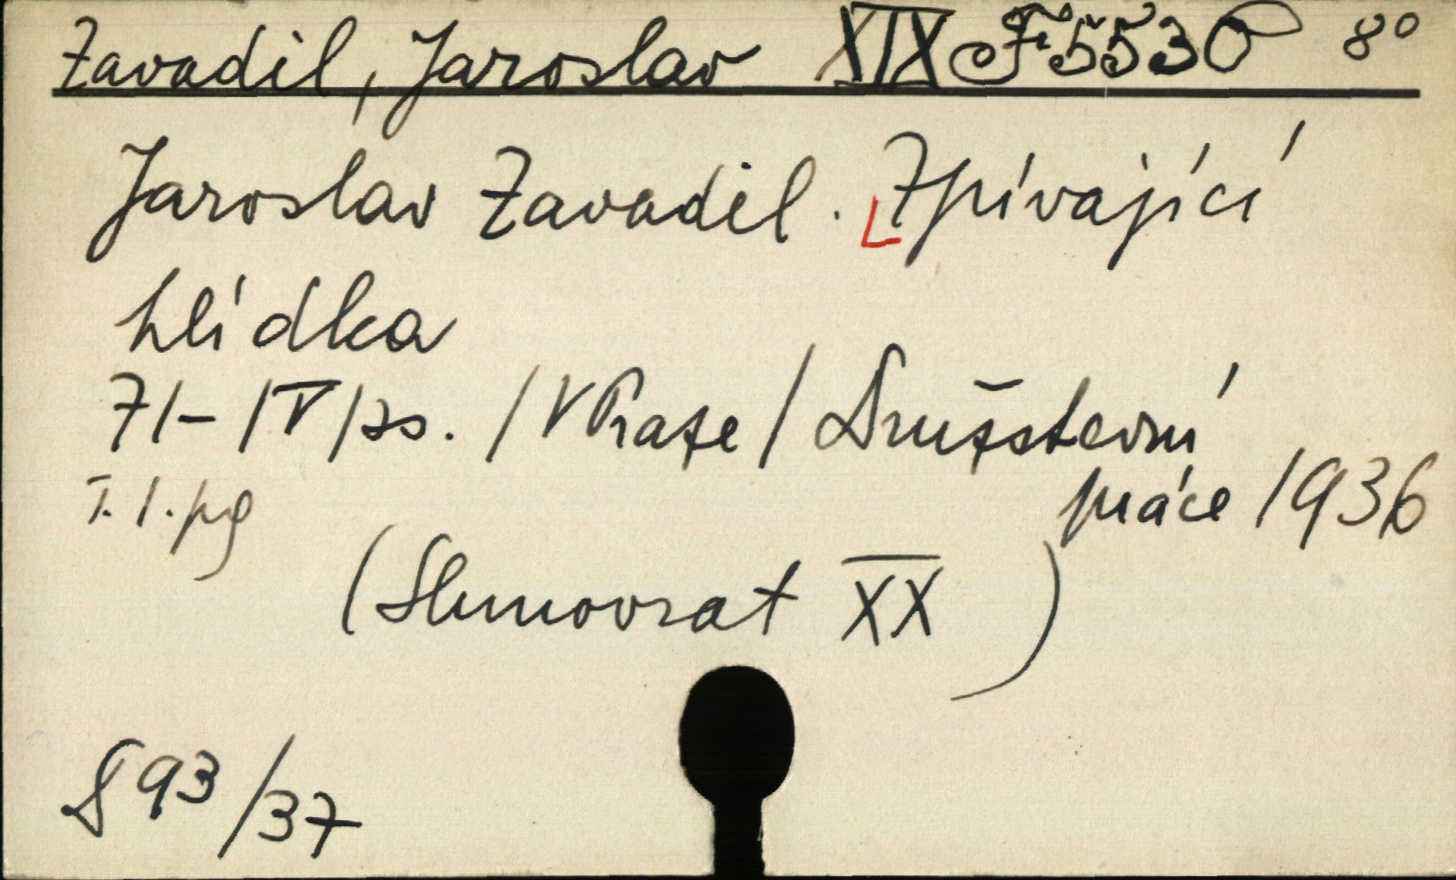 Zavadil, Jaroslav XIX F 5530 8°
Jaroslav Zavadil. Zpívající
hlídka
71-IV/ss. / V Praze / Družstevní
práce 1936
I. 1. pg
(Slunovrat XX)
893/37